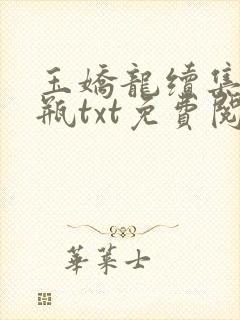 玉嬌龍續集
瓶txt免費閱
華萊士